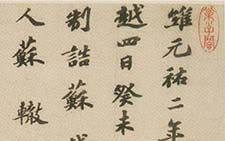 維元祐二年
越四日癸未
制誥蘇
人蘇轍